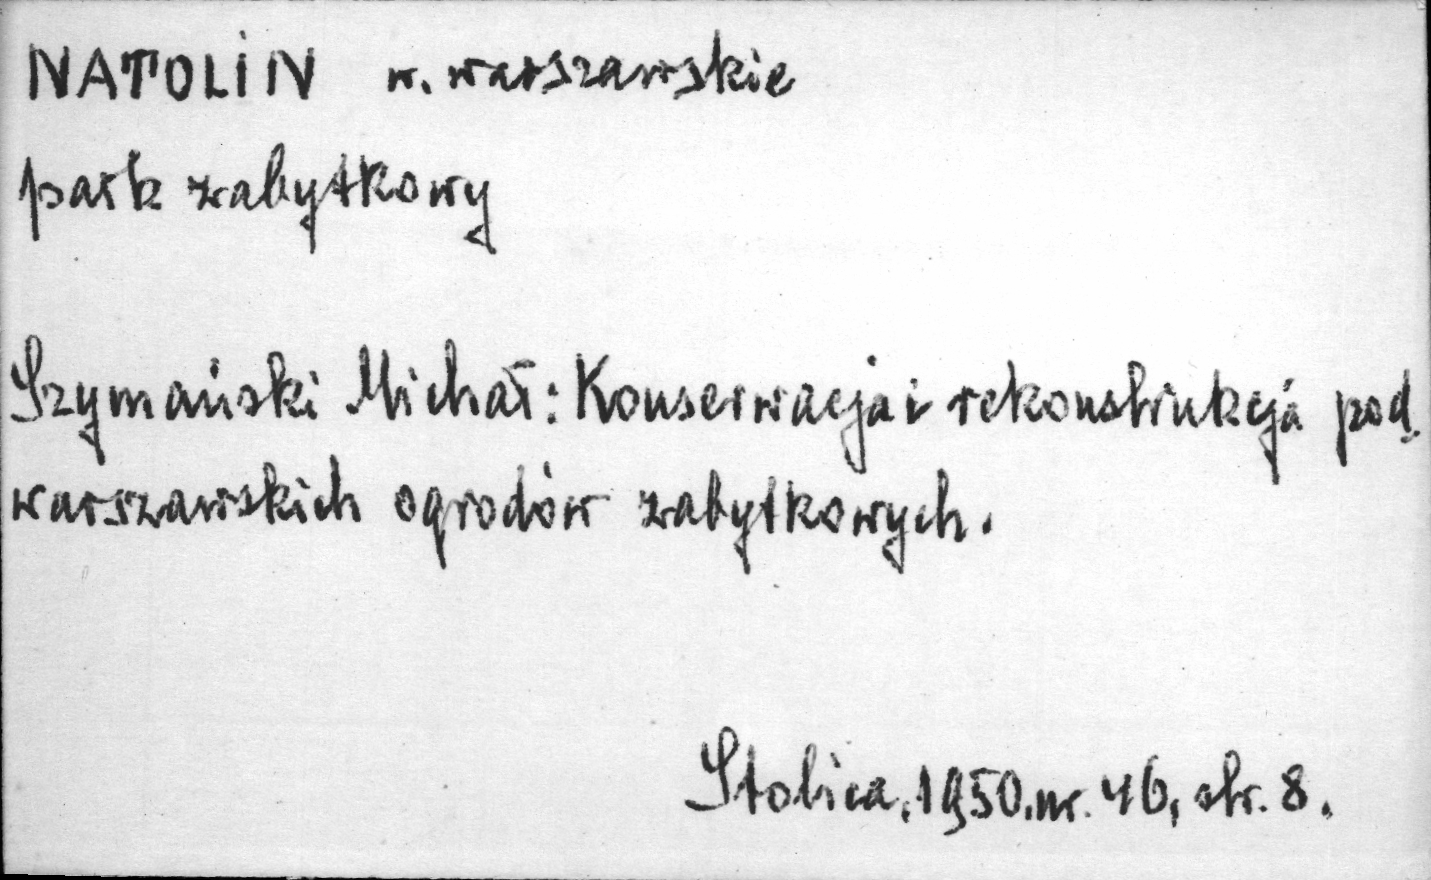 NATOLIN w. warszawskie
park zabytkowy
Szymański Michał: Konserwacja i rekonstrukcja pod.
warszawskich ogrodów zabytkowych.
Stolica, 1950, nr. 46, str. 8.